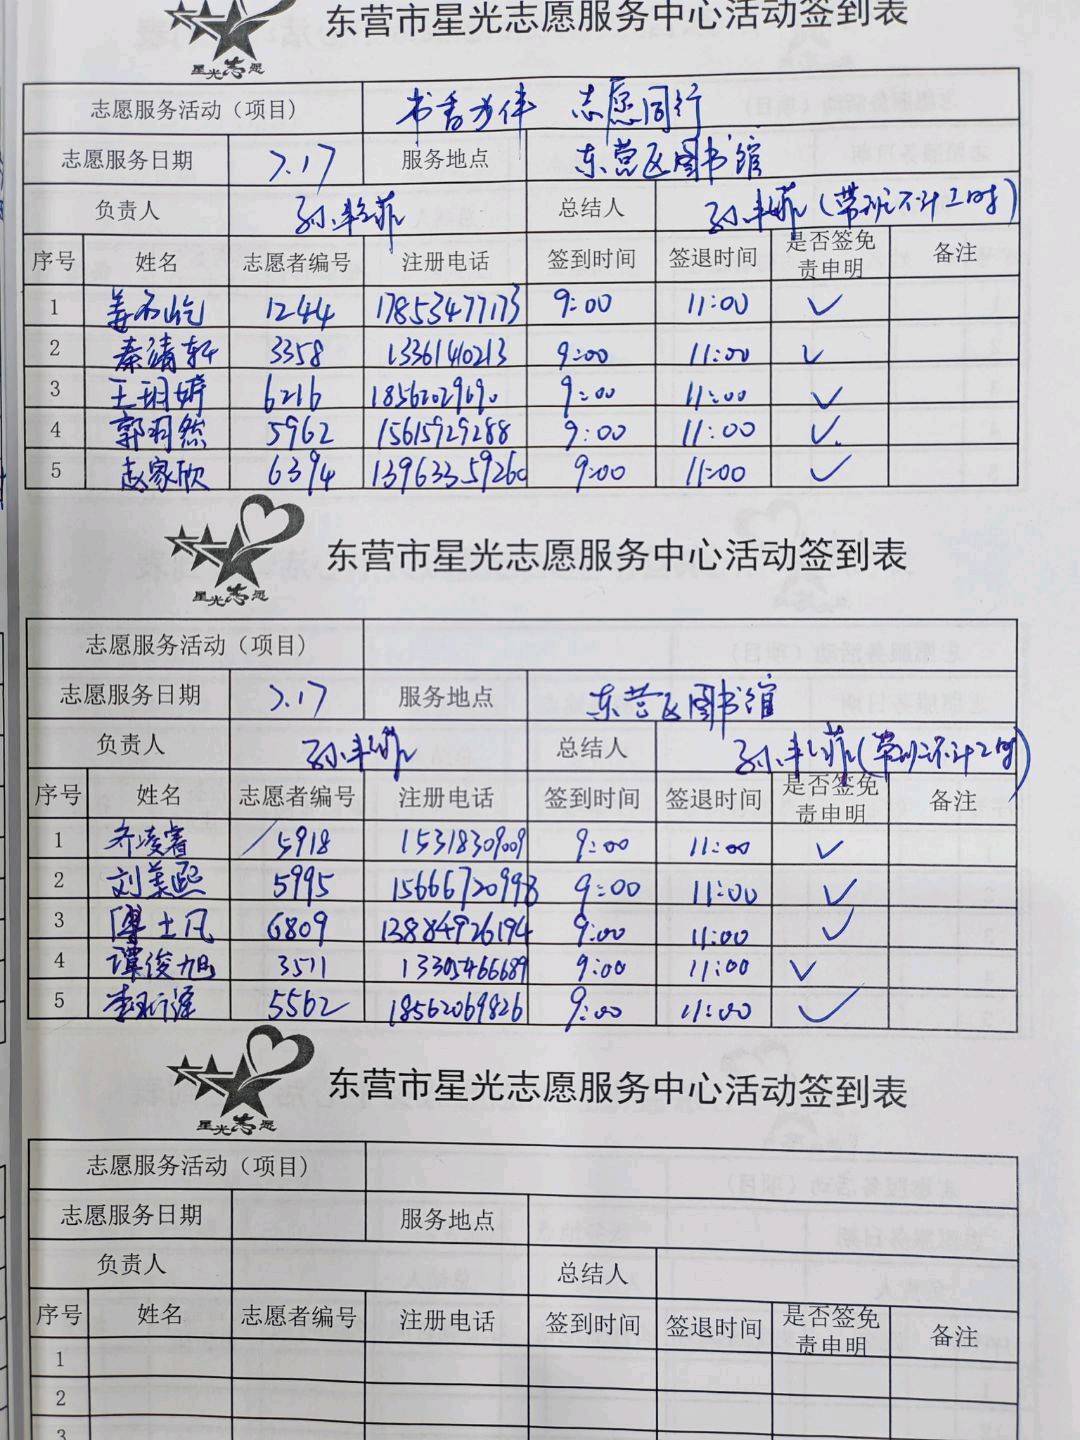 东营市星光志愿服务中心活动签到表
星光志愿
志愿服务活动（项目） 书香为伴 志愿同行
志愿服务日期 7.17 服务地点 东营区图书馆
负责人 孙艳菲 总结人 孙艳菲（带班不计工时）
序号 姓名 志愿者编号 注册电话 签到时间 签退时间 是否签免责申明 备注
1 姜 屹 1244 17853477173 9:00 11:00 ✓
2 秦靖轩 3358 1336140213 9:00 11:00 ✓
3 王玥婷 6216 18562029690 9:00 11:00 ✓
4 郭羽然 5962 15615929288 9:00 11:00 ✓
5 赵家欣 6394 13963359260 9:00 11:00 ✓
星光志愿
东营市星光志愿服务中心活动签到表
志愿服务活动（项目）
志愿服务日期 7.17 服务地点 东营区图书馆
负责人 孙艳菲 总结人 孙艳菲（带班不计工时）
序号 姓名 志愿者编号 注册电话 签到时间 签退时间 是否签免责申明 备注
1 齐凌睿 5918 15318309009 9:00 11:00 ✓
2 刘美熙 5995 15666720998 9:00 11:00 ✓
3 士凡 6809 13884926194 9:00 11:00 ✓
4 谭俊旭 3511 13305466689 9:00 11:00 ✓
5 李 5562 18562069826 9:00 11:00 ✓
星光志愿
东营市星光志愿服务中心活动签到表
志愿服务活动（项目）
志愿服务日期 服务地点
负责人 总结人
序号 姓名 志愿者编号 注册电话 签到时间 签退时间 是否签免责申明 备注
1
2
3